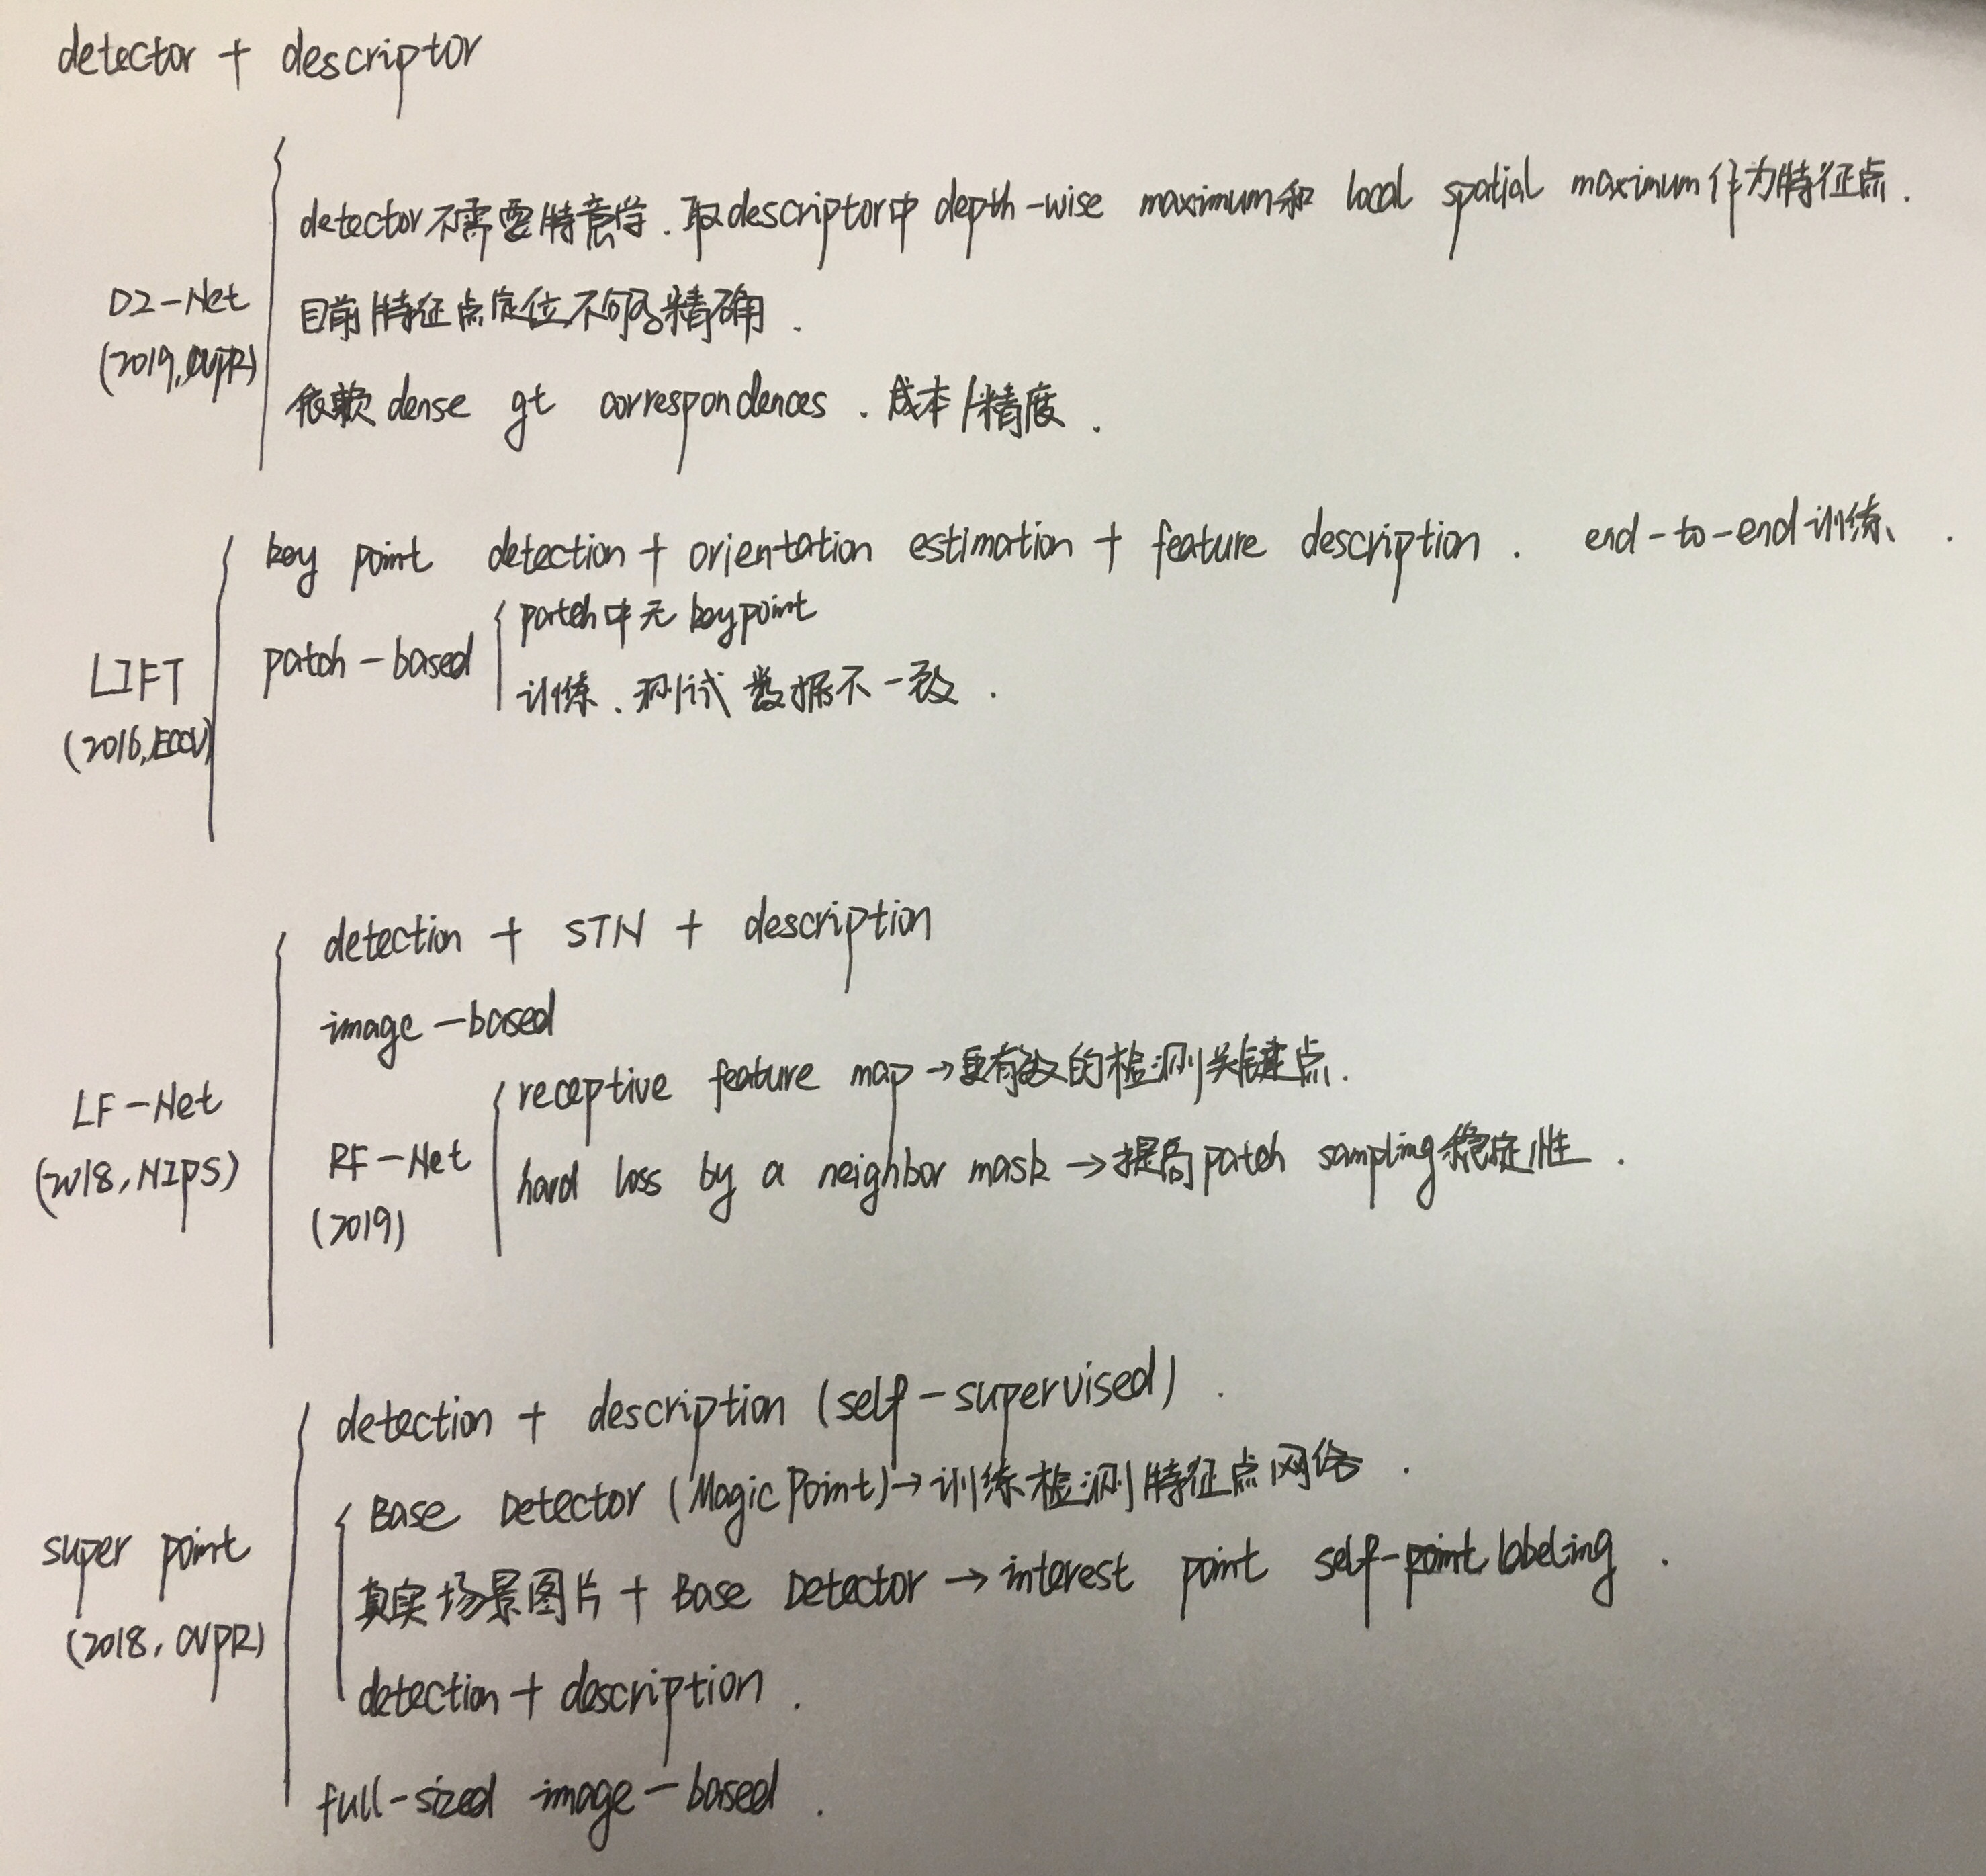 detector + descriptor
detector不需要特意学.取descriptor中 depth-wise maximum和 local spatial maximum作为特征点.
D2-Net
目前特征点定位不够精确.
(2019,CVPR)
依赖dense gt correspondences.成本/精度.
key point detection + orientation estimation + feature description. end-to-end训练.
patch中无 keypoint
LIFT
patch-based
训练、测试数据不一致.
(2016,ECCV)
detection + STN + description
image-based
receptive feature map→更有效的检测关键点.
LF-Net
(2018,NIPS)
RF-Net
(2019)
hard loss by a neighbor mask→提高patch sampling稳定性.
detection + description (self-supervised).
Base Detector (Magic Point)→训练检测特征点网络.
super point
真实场景图片 + Base Detector → interest point self-point labeling.
(2018, CVPR)
detection + description.
full-sized image-based.